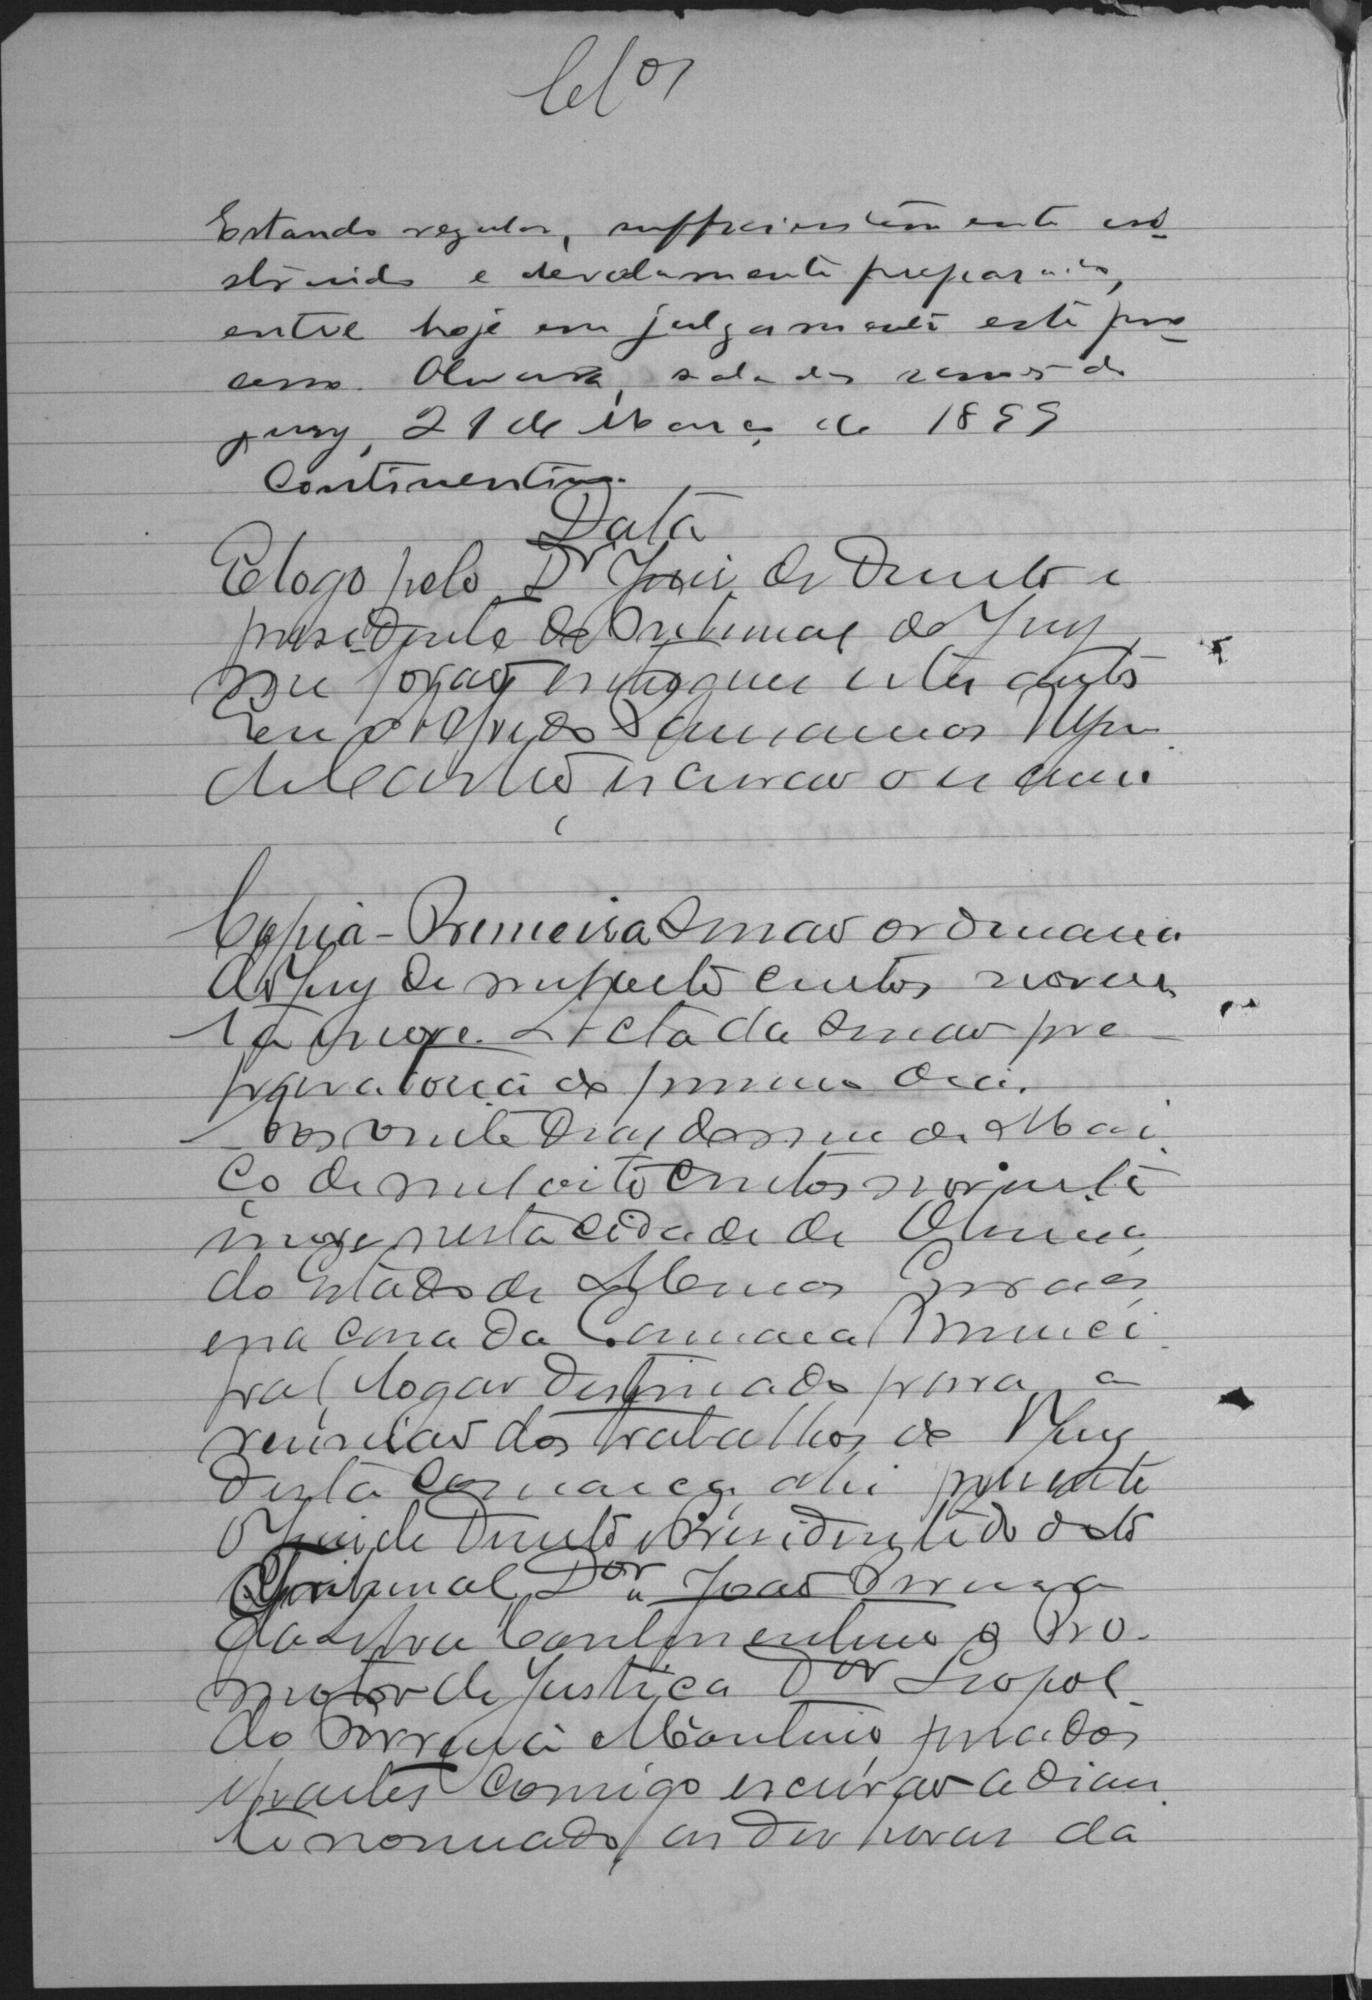 Clos
Estando regular, sufficientemente ins
struido e devidamente preparado,
entre hoje em julgamento este pro
cesso. Oliveira, sala das sessões do
jury, 21 de Março de 1899
Continentino.
Data
E logo pelo Dr Juiz de Direito e
presidente do Tribunal do Jury
me forão entregues estes autos
Eu Alfredo
de Castro escrivão o escrevi.
Copia - Primeira Sessão ordinaria
do Jury de mil oito centos noven
ta e nove. Acta da Sessão pre
paratoria do primeiro dia.
Aos vinte dias do mez de Mar
ço de mil oito centos noventa
e nove nesta cidade de Oliveira
do Estado de Minas Geraes,
e na casa da Camara Munici
pal, logar destinado para a
reunião dos trabalhos do Jury
desta comarca, ahi presente
o Juiz de Direito e Presidente do dito
Tribunal, Dor João
da Silva Continentino o Pro-
motor de Justiça Dor Leopol-
do Ferreira Monteiro, jurados
e partes comigo escrivão adian
te nomeado, as dez horas da